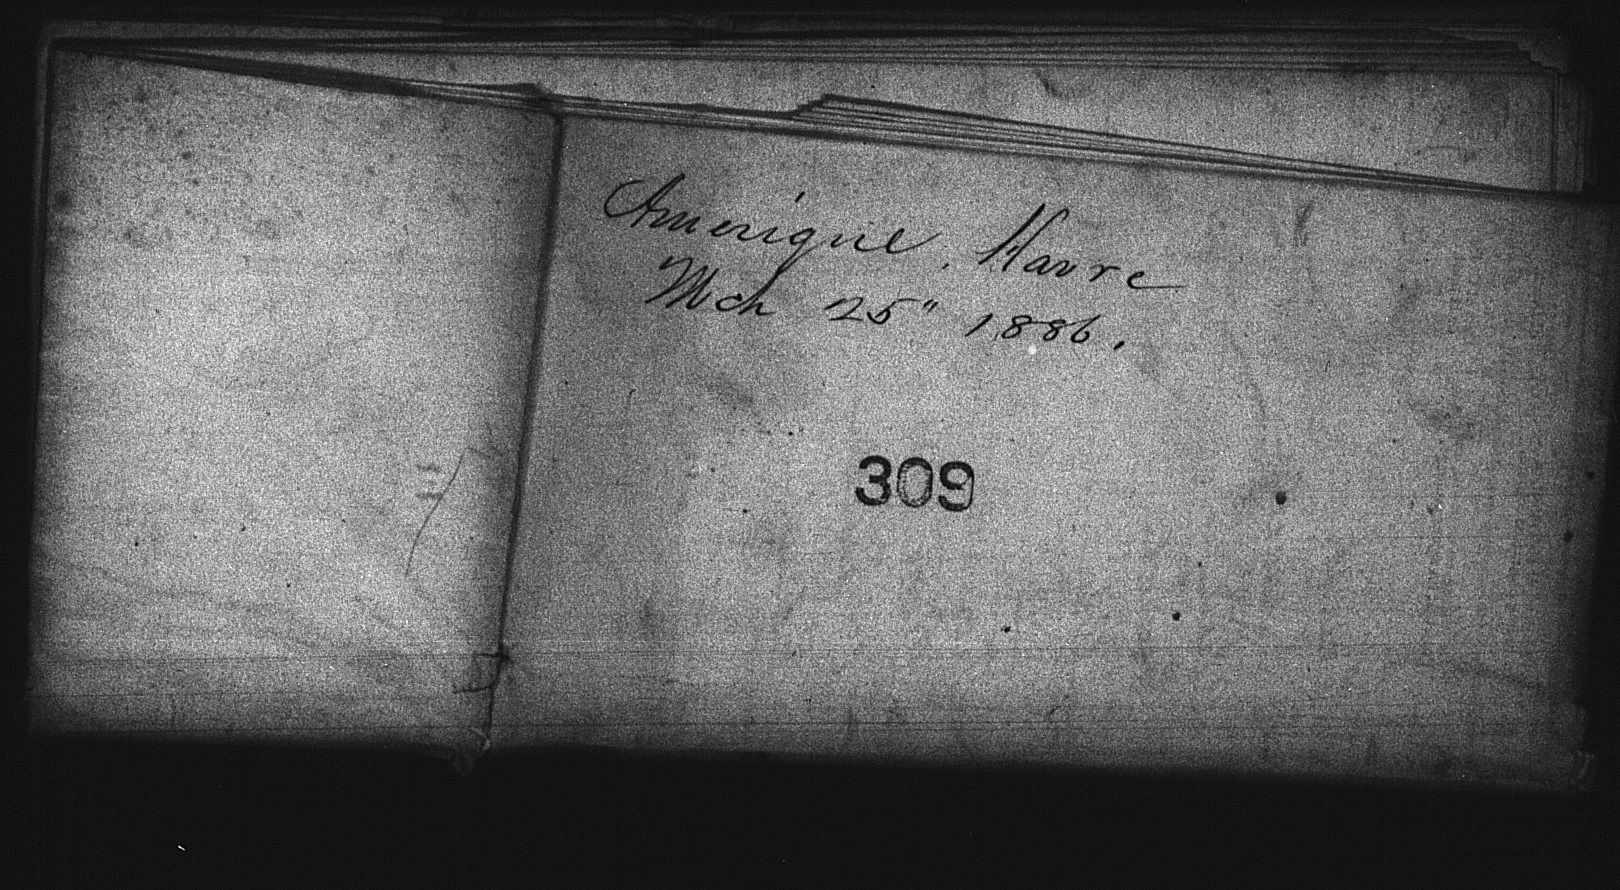 Amerique. Havre
Mch 25" 1886.
309